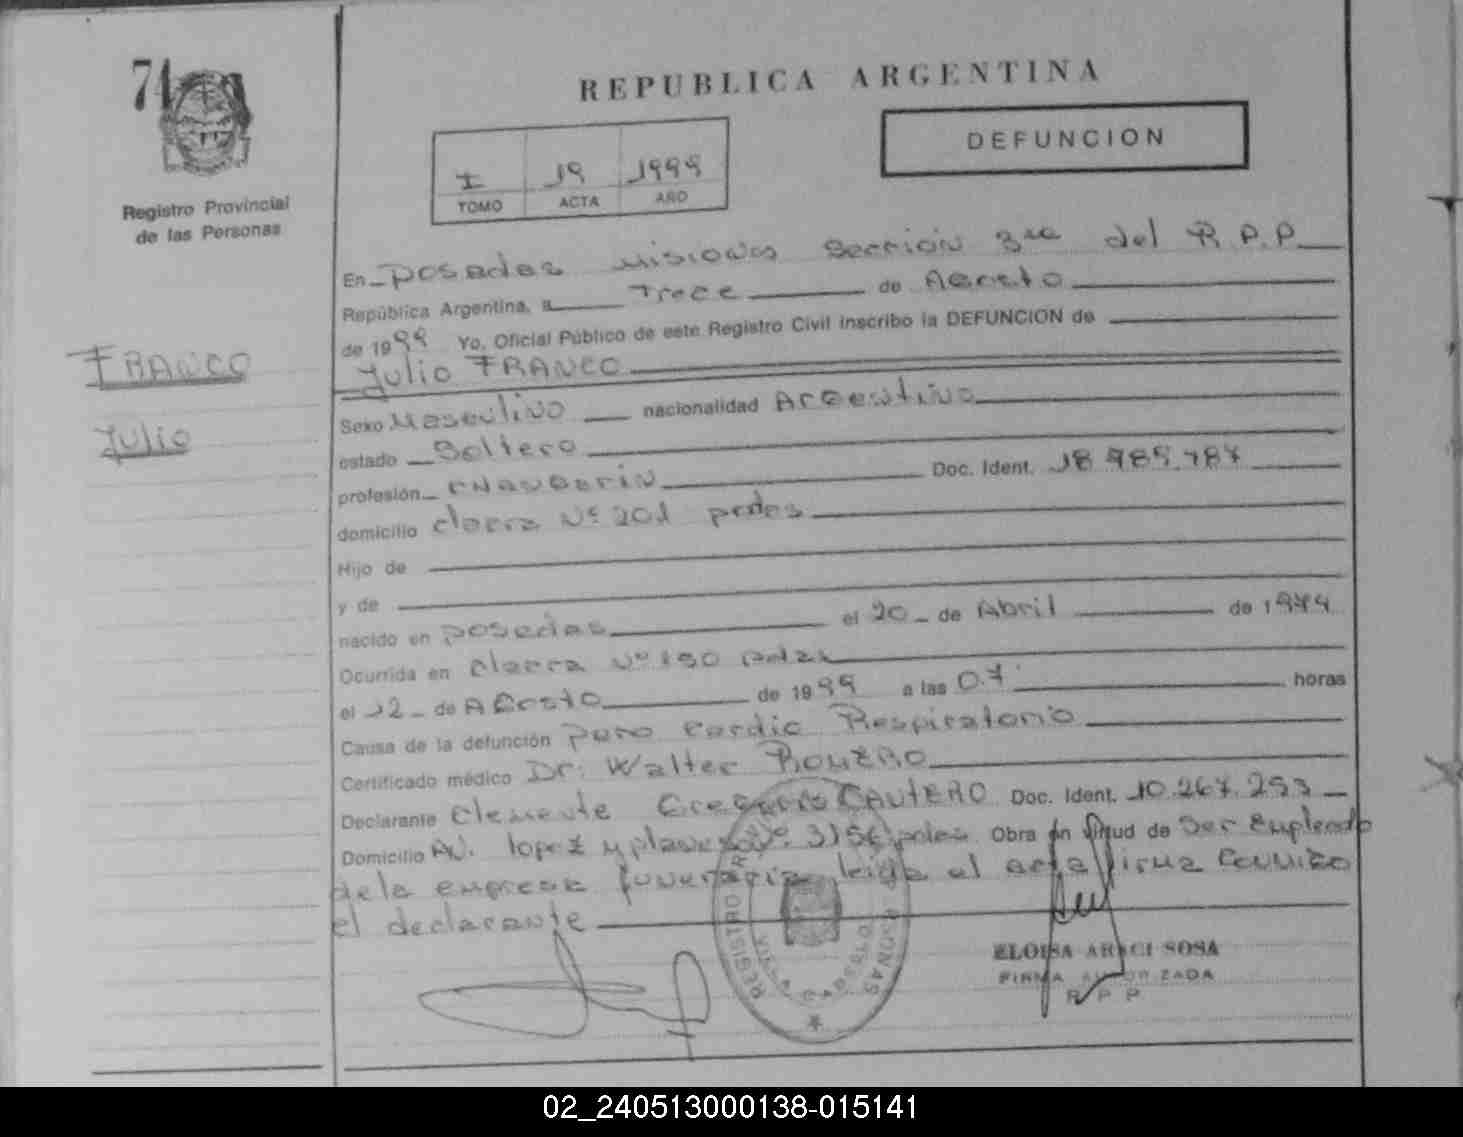 74
REPUBLICA ARGENTINA
DEFUNCION
I 19 1999
TOMO ACTA AÑO
Registro Provincial
de las Personas
En Posadas Misiones Sección 3ra del R.P.P
República Argentina, a Trece de Agosto
de 1999 Yo, Oficial Público de este Registro Civil inscribo la DEFUNCION de
Julio FRANCO
FRANCO
Julio
Sexo Masculino nacionalidad Argentino
estado Soltero
profesión Doc. Ident. 18.985.787
domicilio chacra Nº 201 pdas
Hijo de
y de
nacido en posadas el 20 de Abril de 19
Ocurrida en chacra Nº 190 pdas
el 12 de Agosto de 1999 a las 07 horas
Causa de la defunción Paro Cardio Respiratorio
Certificado médico Dr: Walter ROMERO
Declarante Clemente Gregorio CAUTERO Doc. Ident. 10.267.253
Domicilio Av. lopez y planes Nº 3156 pdas Obra en virtud de Ser Empleado
de la empresa funeraria leida el acta firma Conmigo
el declarante
REGISTRO
ELOISA ARACI SOSA
FIRMA AUTORIZADA
R P P
02_240513000138-015141